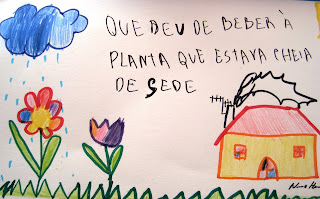 QUE DEU DE BEBER À
PLANTA QUE ESTAVA CHEIA
DE SEDE